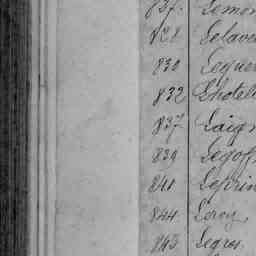 837. Lemon
828 Gelave
830 Lequer
832 Lhotel
837 Laign
839 Legoff
840 Leprin
844 Leroy,
843 Legros,